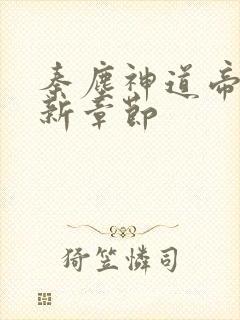 秦塵神道帝
新章節
猗笠憐司